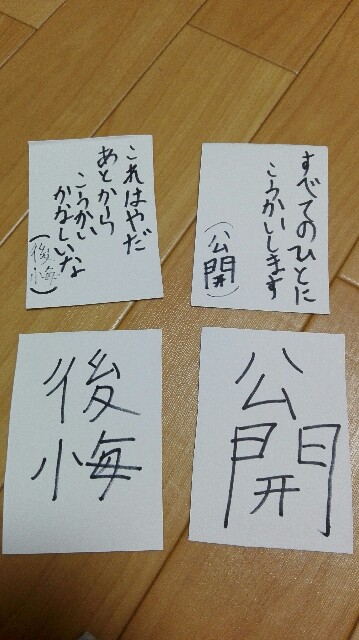 すべてのひとに
こうかいします
(公開)
これはやだ
あとから
こうかい
かなしいな
(後悔)
公開
後悔